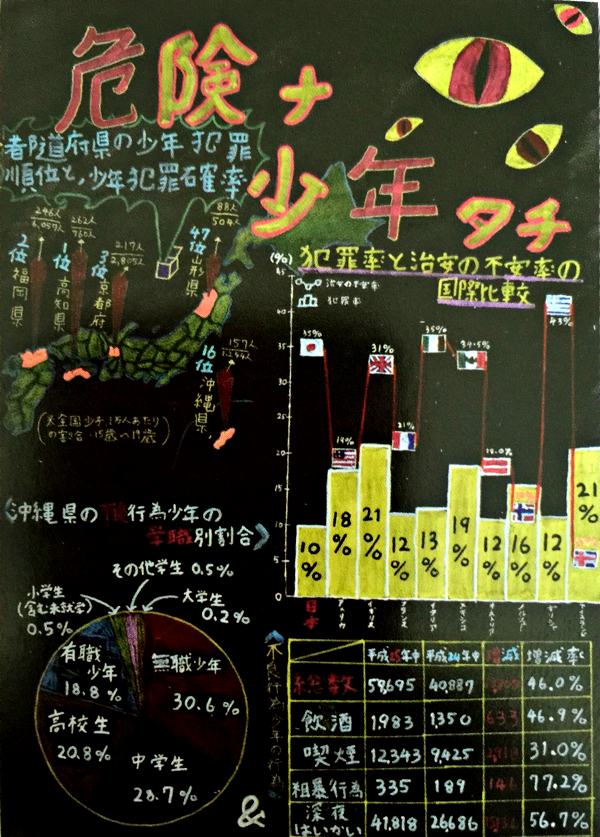 危険ナ
少年タチ
都道府県の少年犯罪
順位と、少年犯罪確率
246人
6,057人
2位
福岡県
262人
760人
1位
高知県
217人
2,805人
3位
京都府
88人
504人
47位
山形県
157人
16位
沖縄県
(※全国少千1万人あたり
の割合 15歳〜19歳)
犯罪率と治安の不安率の
国際比較
治安の不安率
犯罪率
(%)
45
40
35
30
25
20
15
10
5
0
35%
19%
31%
21%
35%
34.5%
18.0%
43%
10%
18%
21%
12%
13%
19%
12%
16%
12%
21%
日本
アメリカ
イギリス
フランス
イタリア
メキシコ
〈沖縄県の不良行為少年の
学職別割合〉
その他学生 0.5%
大学生
0.2%
小学生
(含む未就学)
0.5%
有職
少年
18.8%
無職少年
30.6%
高校生
20.8%
中学生
28.7%
&
〈不良行為少年の行為〉
平成25年中 平成24年中 増減 増減率
総数 59,695 40,887 46.0%
飲酒 1,983 1,350 633 46.9%
喫煙 12,343 9,425 2,918 31.0%
粗暴行為 335 189 146 77.2%
深夜はいかい 41,818 26,686 56.7%